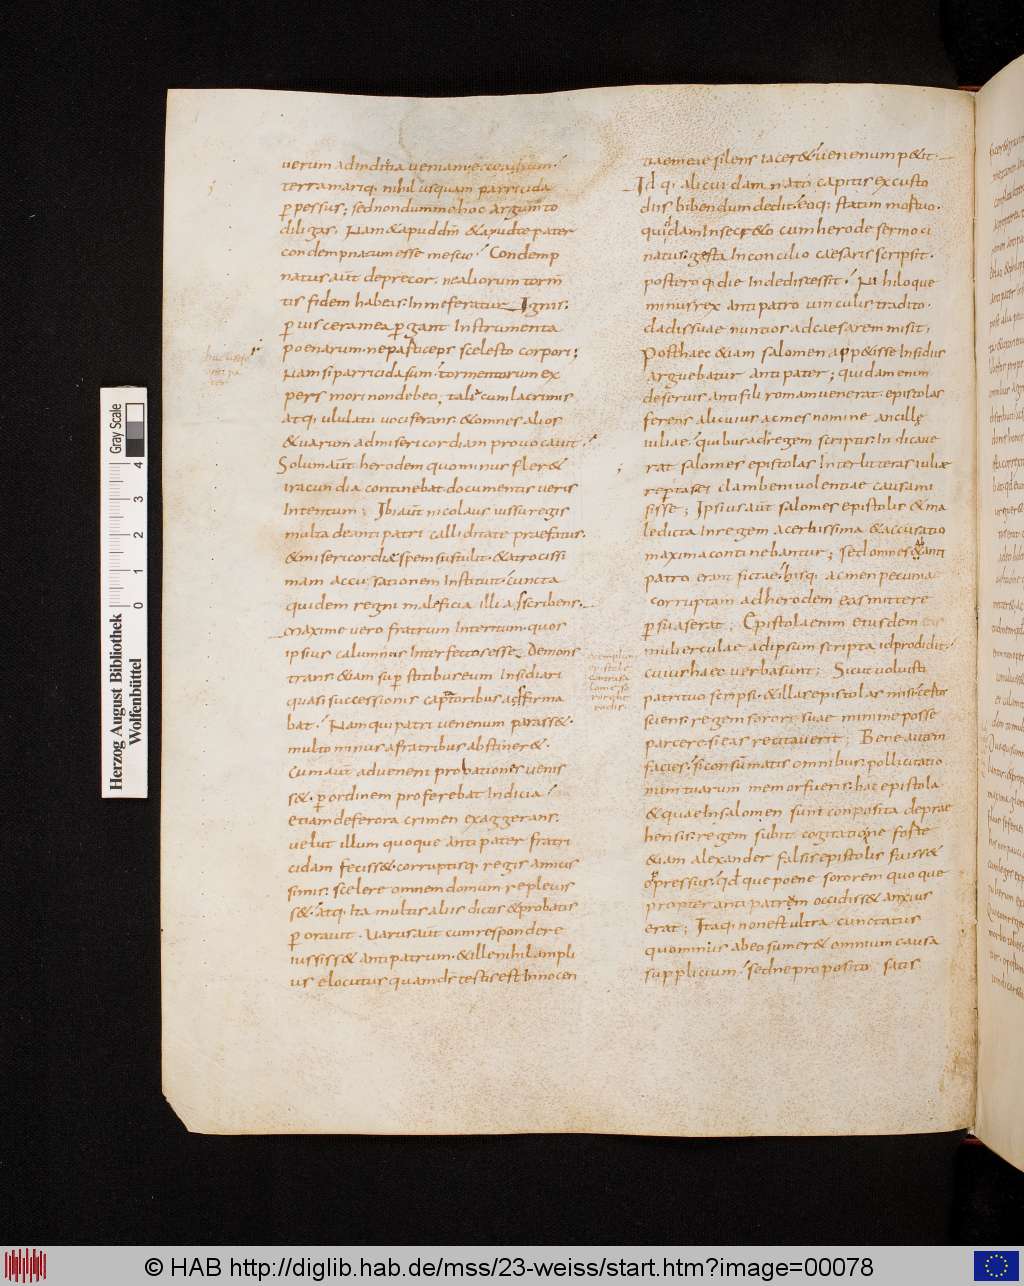 terra mariq; nihil usquam parricida
p̱pessus; sed nondum me hoc argum̄to
diligas. Nam & apud dm̄ & apud te pater
condempnatum esse me scio. Condemp
natus aut̄ deprecor. ne aliorum torm̄
tis fidem habeas. In me feratur ignis.
p̱ viscera mea p̱ gant instrumenta
poenarum. ne pa sit ceps scelesto corpori;
Nam si parricida sum. tormentorum ex
pers mori non debeo; talẽ cum lacrimis
atq; ululatu vociferans. & omnes alios
& varum ad misericordiam provocavit.
Solum aut̄ herodem quominus fler&
iracundia continebat. documentis veris
intentum; Ibi aut̄ nicolaus iussu regis
multa de antipatri calliditate praefatus.
& misericordiae spem sustulit. & atrocissi
mam accusationem instituit. cuncta
quidem regni maleficia illi asscribens.
maxime vero fratrum interitum. quos
ipsius calumniis interfectos esse. Demons
trans. &iam sup̱stitibus eum insidiari
quasi successionis captatoribus affirma
bat. Nam qui patri venenum parass&.
multo minus a fratribus abstiner&.
Cum aut̄ ad veneni probationes venis
s&. p̱ ordinem proferebat indicia.
etiam de ferora crimen exaggerans.
velut illum quoque antipater fratri
cidam feciss&. corruptisq; regis amicis
simis. scelere omnem domum replevis
s&. atq; ita multis aliis dictis & probatis
p̱oravit. Varus aut̄ cum respondere
iussiss& antipatrum. & ille nihil ampli
us elocutus quam ds̄ testis est innocen
tiae meae silens iacer& venenum p&it.
Id q; alicui damnato capitis ex custo
diis bibendum dedit. eoq; statim mortuo.
quidam in secr&o cum herode sermoci
natus. gesta in concilio caesaris scripsit.
posteroq; die inde discessit. Nihiloque
minus rex antipatro vinculis tradito.
cladis suae nuntios ad caesarem misit.
Posthaec &iam salomen app&isse insidiis
arguebatur antipater; quidam enim
de servis antifili roma venerat. epistolas
ferens alicuius acmes nomine ancillę
iuliae. quibus ad regem scriptis. Indicave
rat salomes epistolas inter litteras iuliae
rep̱tas ei clam benivolentiae causa mi
sisse; Ipsius aut̄ salomes epistolis & ma
ledicta in regem acerbissima & accusatio
maxima continebantur; Sed omnes & anti
patro erant fictae. hisq; acmen pecunia
corruptam ad herodem eas mittere
p̱suaserat; Epistola enim eiusdem
mulierculae ad ipsum scripta id prodidit.
cuius haec verba sunt; Sicut voluisti
patri tuo scripsi. & illas epistolas misi certo
sciens. regem sorori suae minime posse
parcere. si eas recitaverit; Bene autem
facies. si consūmatis omnibus. pollicitatio
num tuarum memor fueris. hac epistola
& quae in salomen sunt conposita deprae
hensis. regem subit cogitatione forte
&iam alexander falsis epistolis fuiss&
oppressus. qd́ que poene sororem quoque
propter antipatrem occidiss& anxius
erat; Itaq; non est ultra cunctatus
quominus ab eo sumer& omnium causa
supplicium. sed ne proposito satis
Herzog August Bibliothek
Wolfenbüttel
0 1 2 3 4
Gray Scale
© HAB http://diglib.hab.de/mss/23-weiss/start.htm?image=00078